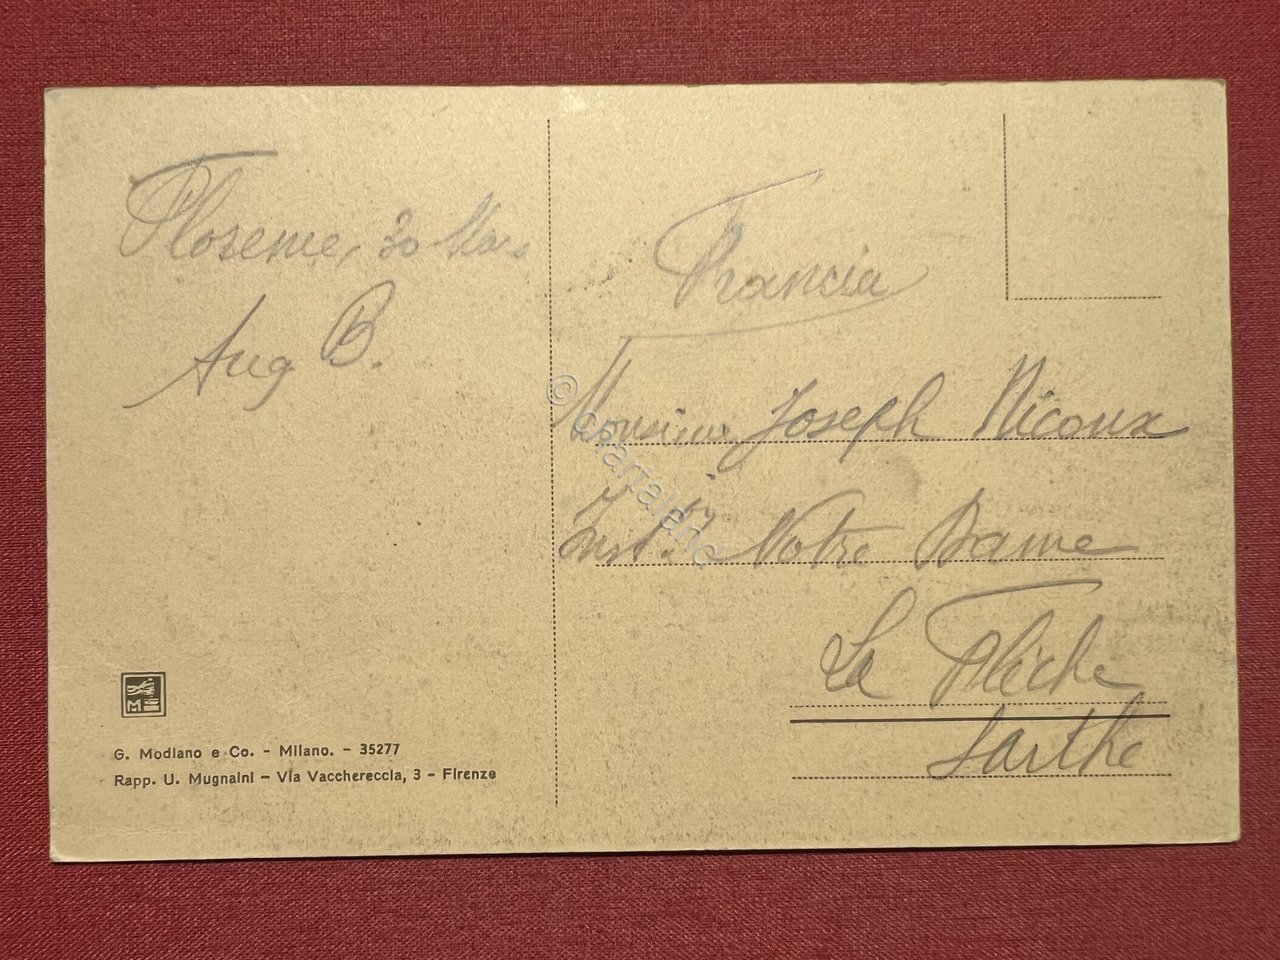 Florence, 30 Mars
Aug B.
G. Modiano e Co. - Milano. - 35277
Rapp. U. Mugnaini - Via Vacchereccia, 3 - Firenze
Francia
Monsieur Joseph Nicoux
Inst.on Notre Dame
La Flèche
Sarthe
© cartaland